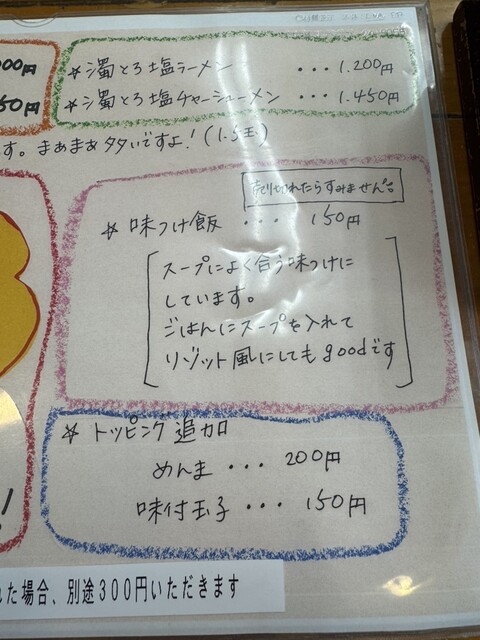 00円
50円
☆濁とろ塩ラーメン ・・・ 1.200円
☆濁とろ塩チャーシューメン ・・・ 1.450円
す。まぁまぁ多いですよ！(1.5玉)
売り切れたらすみません
☆味つけ飯 ・・・ 150円
スープによく合う味つけに
しています。
ごはんにスープを入れて
リゾット風にしてもgoodです
☆トッピング追加
めんま ・・・ 200円
味付玉子 ・・・ 150円
!
れた場合、別途300円いただきます